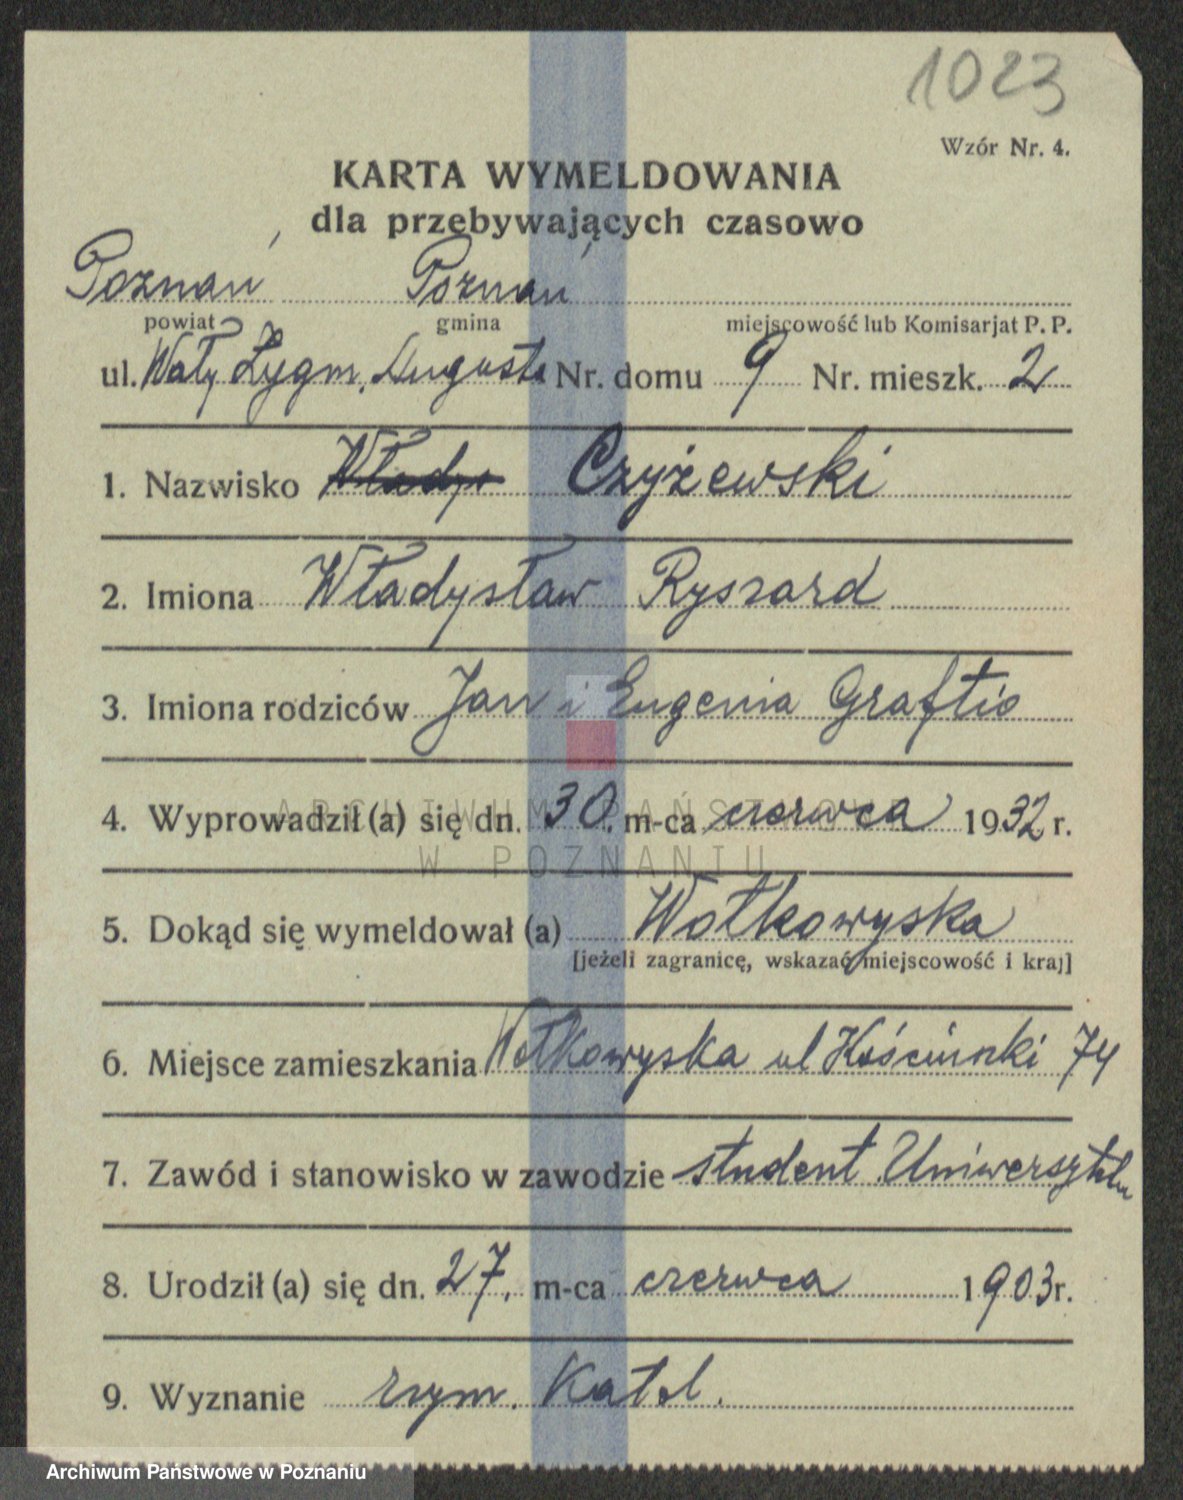 1023
Wzór Nr. 4.
KARTA WYMELDOWANIA
dla przebywających czasowo
Poznań Poznań
powiat gmina miejscowość lub Komisarjat P. P.
ul. Wały Zygm. Augusta Nr. domu 9 Nr. mieszk. 2
1. Nazwisko Władys Czyżewski
2. Imiona Władysław Ryszard
3. Imiona rodziców Jan i Eugenia Graftio
4. Wyprowadził (a) się dn. 30. m-ca czerwca 1932 r.
ARCHIWUM PAŃSTWOWE
W POZNANIU
5. Dokąd się wymeldował (a) Wołkowyska
[jeżeli zagranicę, wskazać miejscowość i kraj]
6. Miejsce zamieszkania Wołkowyska ul Kościuszki 74
7. Zawód i stanowisko w zawodzie student Uniwersytetu
8. Urodził (a) się dn. 27. m-ca czerwca 1903 r.
9. Wyznanie rzym. Katol.
Archiwum Państwowe w Poznaniu